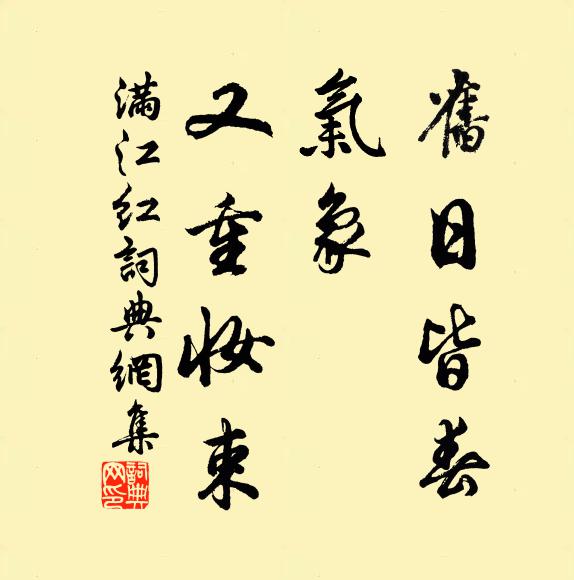 舊日皆春
氣象
又重妝束
滿江紅詞典網集
詞典
网印